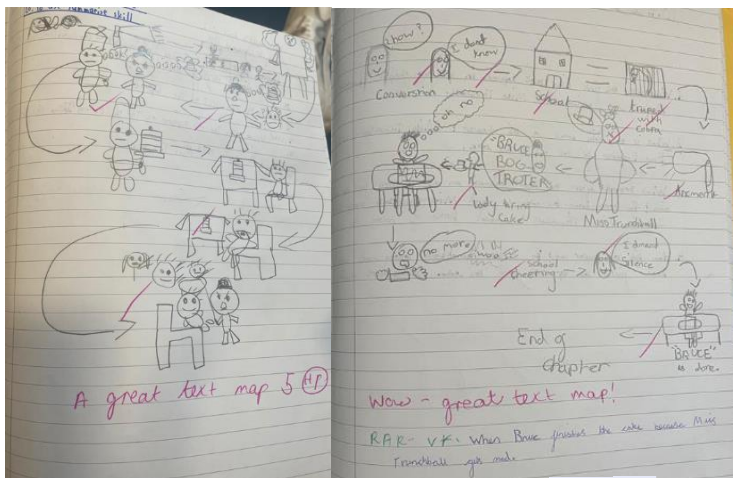 summarise skill
A great text map 5 HP
how?
I dont
know
Conversion
School
with
cobra
oh no
"BRUCE
BOG
TROTER"
lady bring
cake
Miss Trunchball
no more
school
cheering
I dmand
silence
End of
chapter
"BRUCE"
is done.
Wow - great text map!
RAR - VF. When Bruce finishes the cake because Miss
Trunchball gets mad.